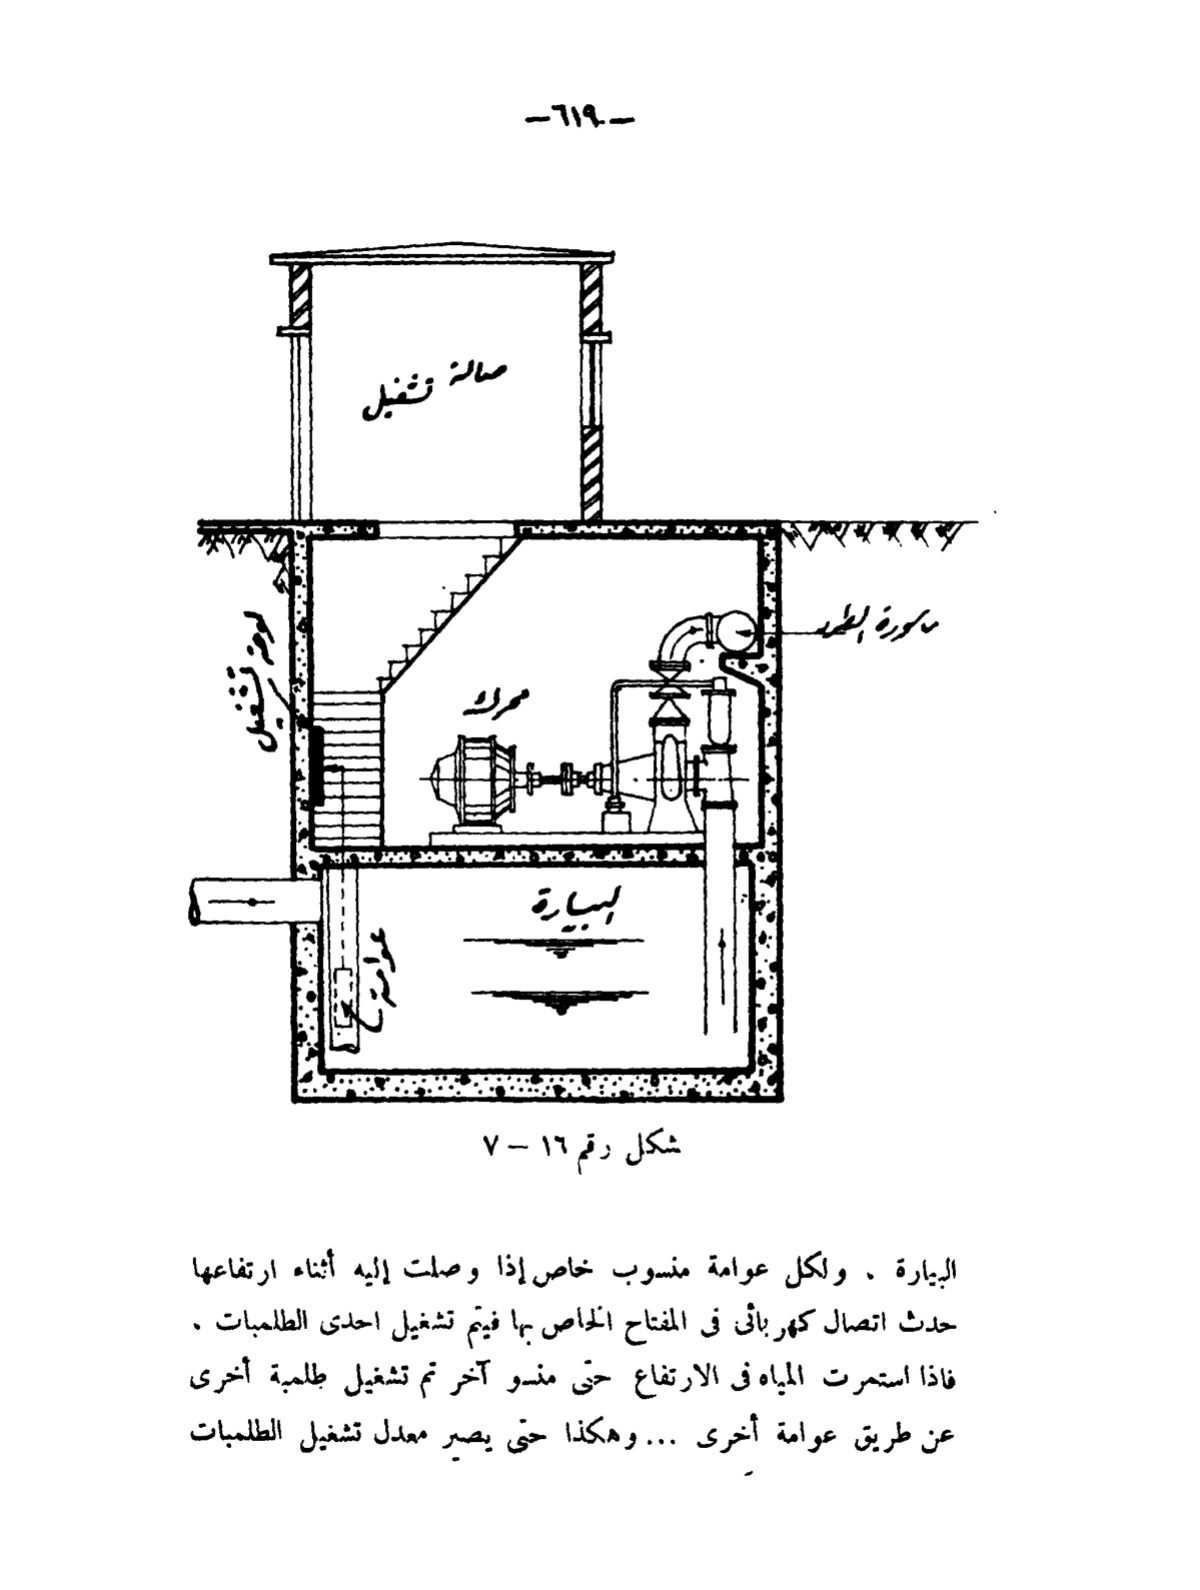 —٦١٩—
صالة تشغيل
ماسورة الطرد
لوحة تشغيل
محرك
البيارة
عوامة
شكل رقم ١٦ – ٧
البيارة . ولكل عوامة منسوب خاص إذا وصلت إليه أثناء ارتفاعها
حدث اتصال كهربائى فى المفتاح الخاص بها فيتم تشغيل احدى الطلمبات .
فاذا استمرت المياه فى الارتفاع حتى منسو آخر تم تشغيل طلمبة أخرى
عن طريق عوامة أخرى ... وهكذا حتى يصير معدل تشغيل الطلمبات